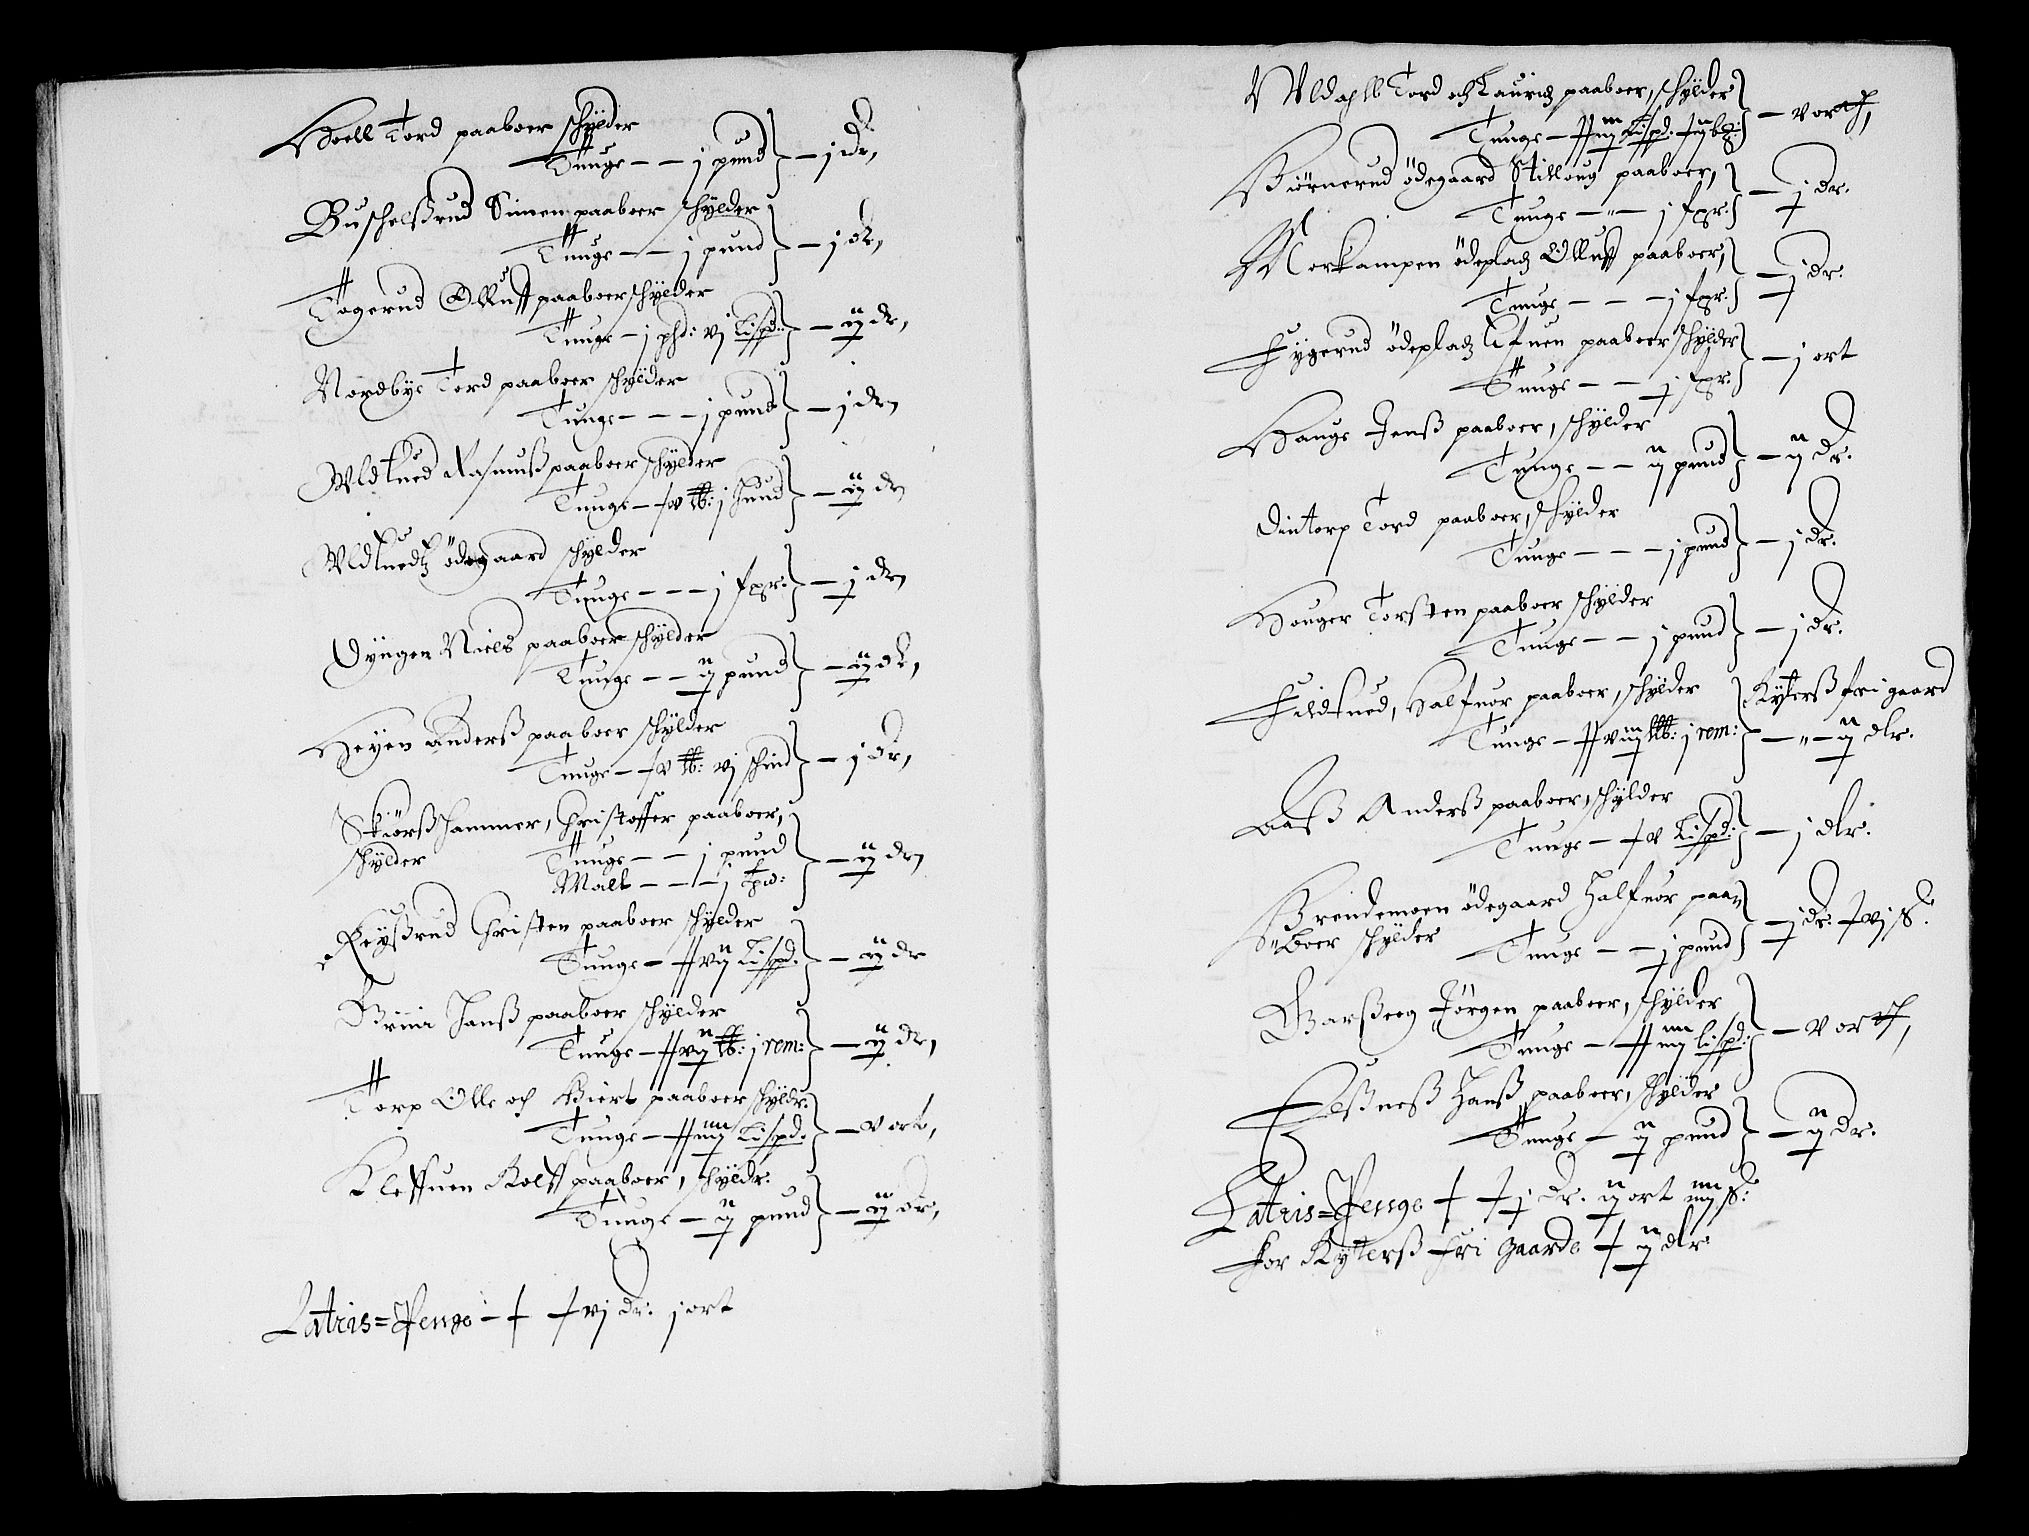 Hoell Tord paaboer schÿlder
Tunge — — j pund} — j dr,
Buschelßrud Simen paaboer schÿlder
Tunge — — j pund} — j dr,
Togerud Olluff paaboer schÿlder
Tunge — j phd: vj Lispd:} — ij dr,
Nordbye Tord paaboer schÿlder
Tunge — — — j pund} — j dr
Wldtued Rasmuß paaboer schÿlder
Tunge — v lb: j Huud} — ij dr
Wldtuedtz ödegaard schÿlder
Tunge — — — j fpr:} — j dr
Dyngen Niels paaboer schÿlder
Tunge — — ij pund} — ij dr,
Heyen Anderß paaboer schÿlder
Tunge — v lb: vj schind} — j dr,
Skiörßhammer, Christoffer paaboer,
schÿlder Tunge — — j pund
Malt — — — j pd:} — ij dr
Reyßrud Christen paaboer schÿlder
Tunge — vij Lispd:} — ij dr
Briia Hanß paaboer schÿlder
Tunge — vij lb: j rem:} — ij dr,
Torp Olle och Biert paaboer schÿldr:
Tunge — iiij Lispd:} — v ort,
Kleffuen Rolff paaboer, schÿldr:
Tunge — ij pund} — ij dr,
Latris=Penge — vj dr. j ort
Tord och Lauridz paaboer, schÿlder
Tunge — iiij Lispd:} — v ort,
Biörnerud ödegaard Stilloug paaboer,
Tunge — „ — j fpr:} — j dr.
Morkampen ödepladz Olluff paaboer,
Tunge — — — j fpr:} — j dr.
Fygerud ödepladz Efuen paaboer schÿlder
Tunge — — j fpr:} — j ort
Hauge Jenß paaboer, schÿlder
Tunge — — ij pund} — ij dr.
Dintorp Tord paaboer, schÿlder
Tunge — — — j pund} — j dr.
Houger Torsten paaboer schÿlder
Tunge — — j pund} — j dr.
Fildtued, Halfuor paaboer, schÿlder } Rytterß fri gaard
Tunge — viij lb: j rem:} — „ — ij dlr.
Aaß Anderß paaboer, schÿlder
Tunge — v Lispd:} — j dlr.
Brendemoen ödegaard Halfuor paa=
=boer schÿlder Tunge — — j pund} — j dr. vj ß.
Garßeeg Jörgen paaboer, schÿlder
Tunge — iiij lispd:} — v ort,
Eßneß Hanß paaboer, schÿlder
Tunge — ij pund} — ij dr.
Latris=Penge j dr. ij ort iiij ß:
For Rytterß fri gaarde ij dlr